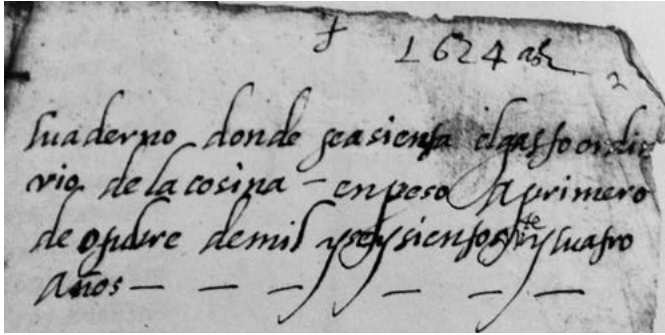 † 1624 as
quaderno donde seasienta elgasto ordin
rio delacosina – enpeso a primero
de otubre demil yseysientos y te y quatro
años — — — — — —